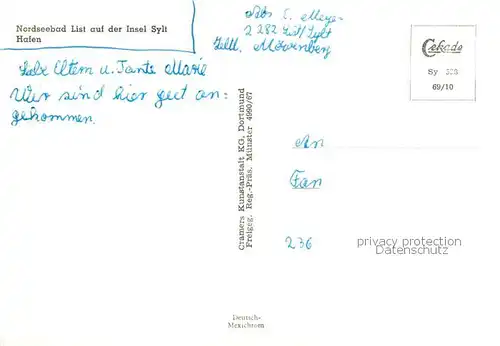 Nordseebad List auf der Insel Sylt
Hafen
Abs E. Meyer
2282 List/Sylt
Zeltl. Mövenberg
Cekade
Sy 322
69/10
Liebe Eltern u. Tante Marie
Wir sind hier gut an=
gekommen.
Cramers Kunstanstalt KG, Dortmund
Freigeg. Reg.-Präs. Münster 4990/67
An
Fam
236
privacy protection
Datenschutz
Deutsch-
Mexichrom